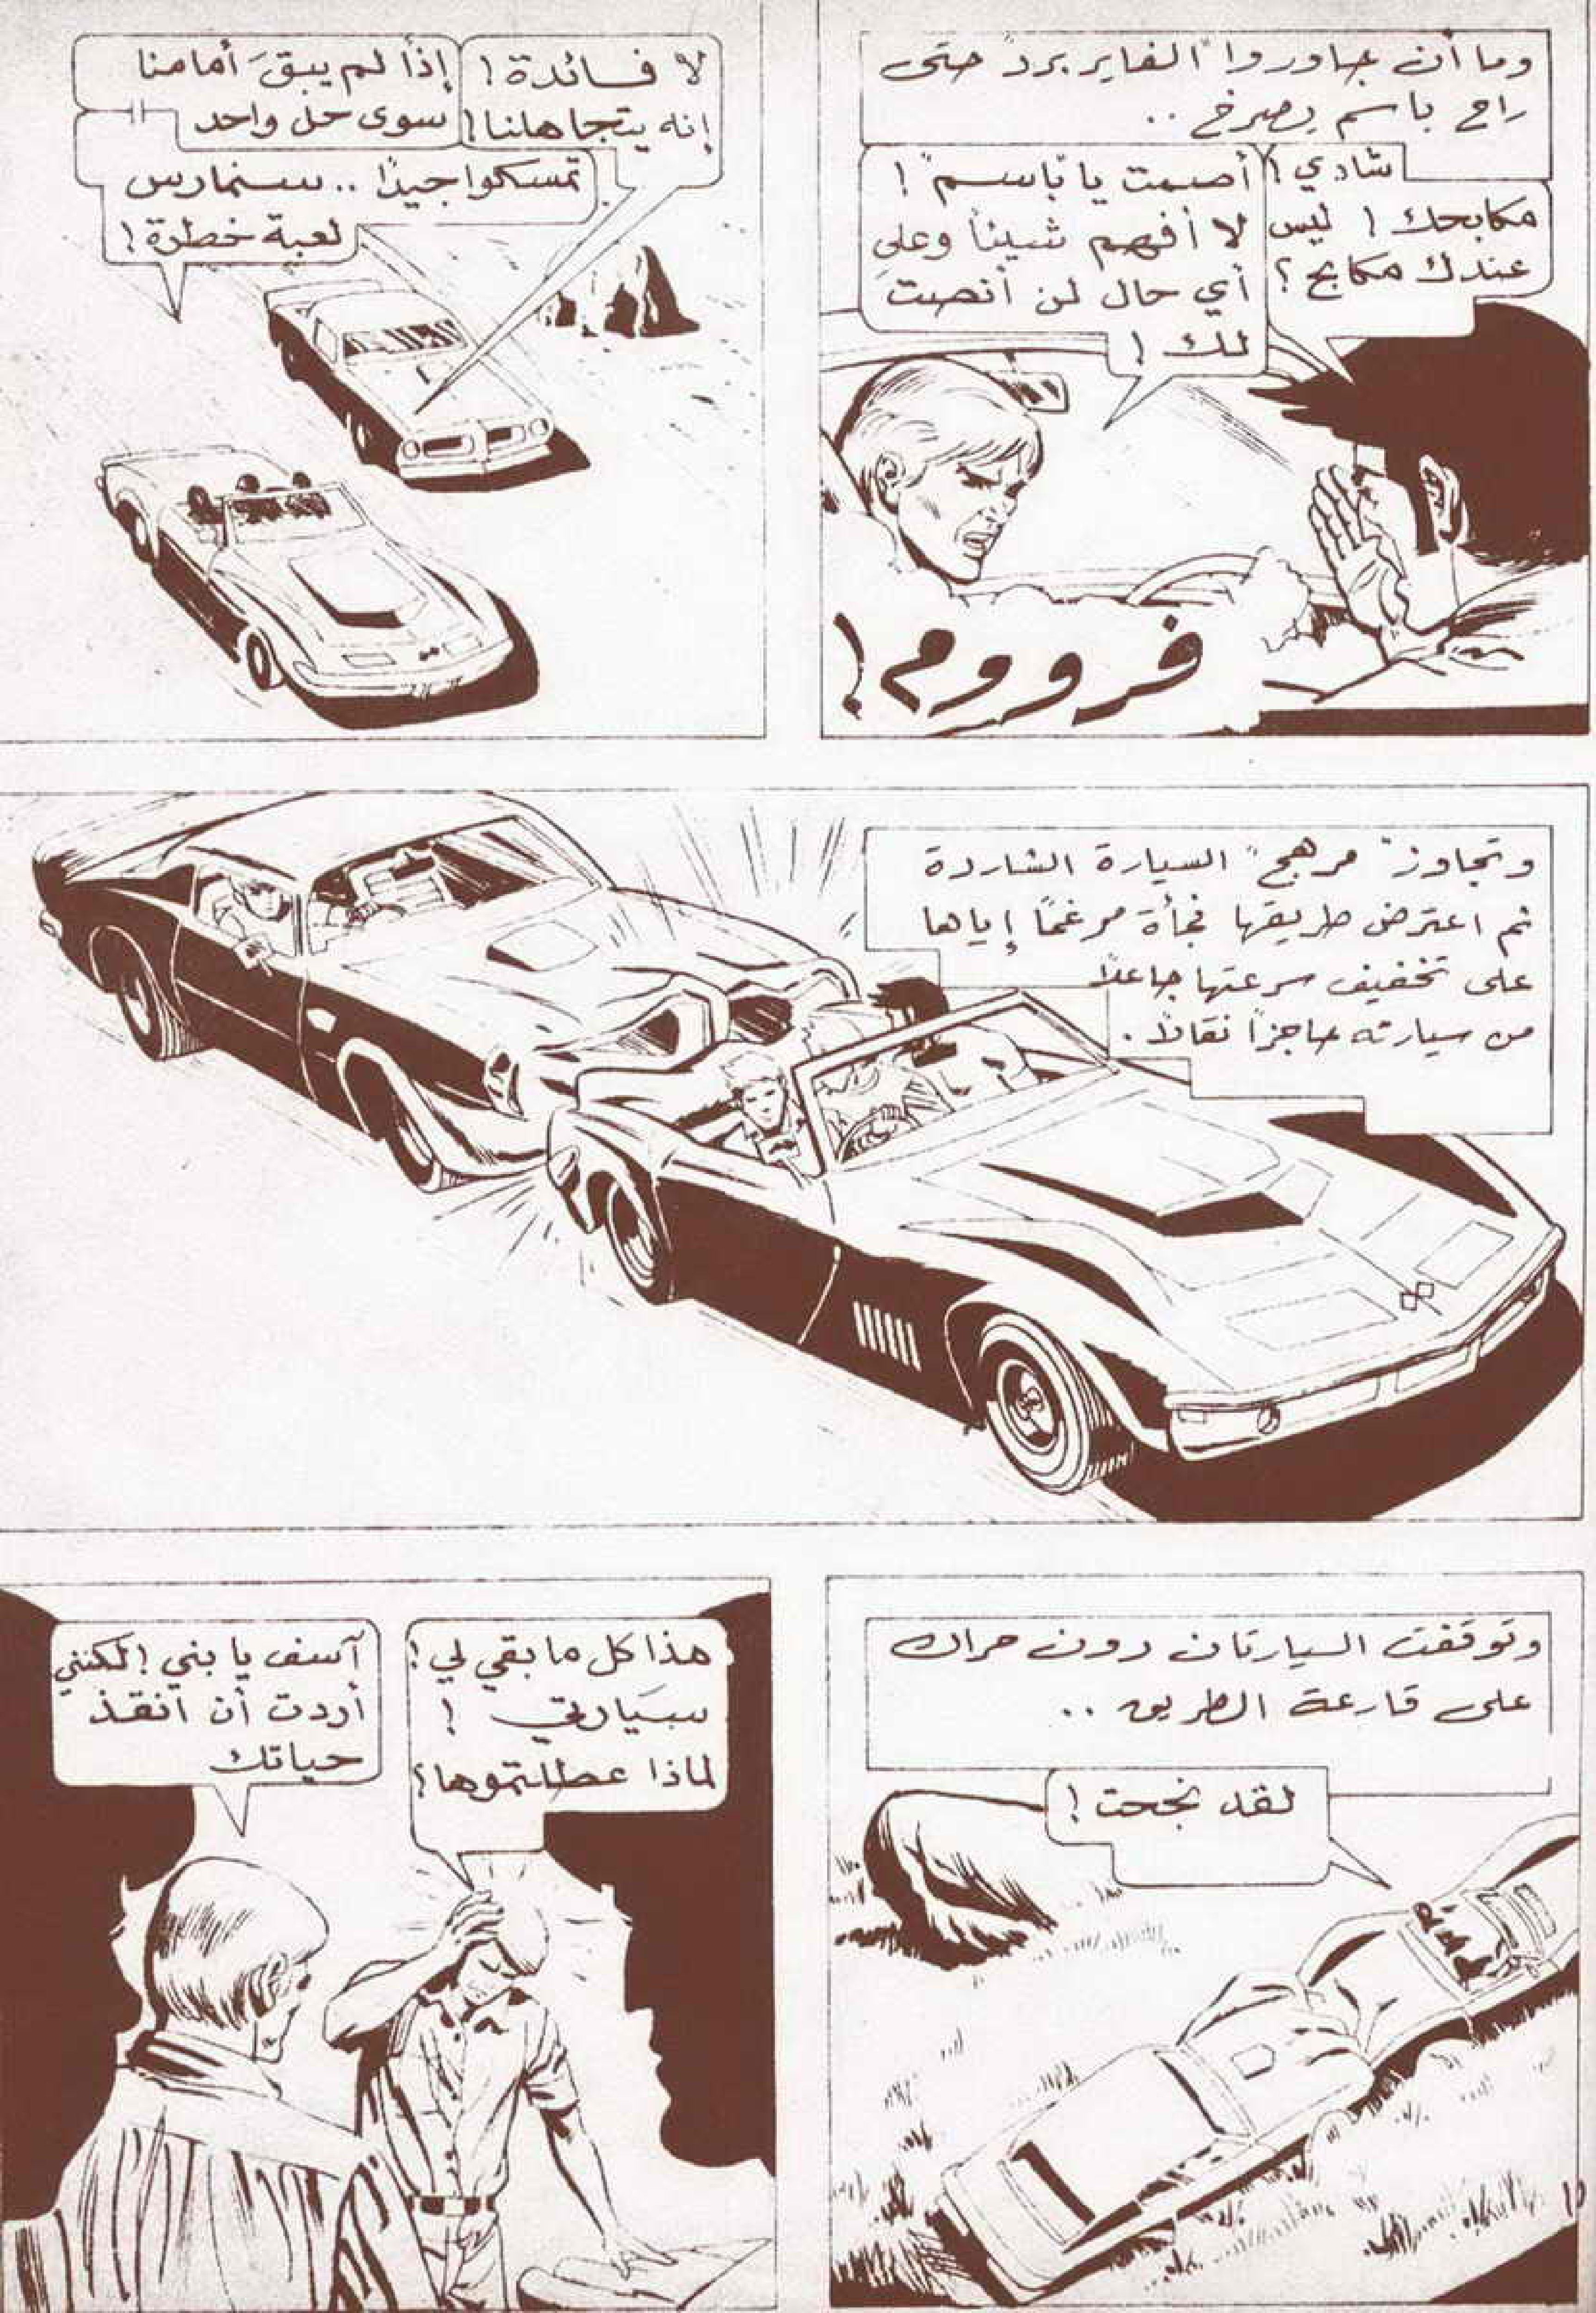 وما أن جاوروا "الفايربرد" حتى
راح باسم يصرخ ..
شادي !
مكابحك ! ليس
عندك مكابح ؟
أصمت يا "باسم" !
لا أفهم شيئاً وعلى
أي حال لن أنصت
لك !
فرووم !
لا فائدة !
إنه يتجاهلنا !
إذاً لم يبقَ أمامنا
سوى حل واحد
تمسكوا جيداً .. سنمارس
لعبة خطرة !
وتجاوز "مرهج" السيارة الشاردة
ثم اعترض طريقها فجأة مرغماً إياها
على تخفيف سرعتها جاعلاً
من سيارته حاجزاً نقالاً .
وتوقفت السيارتان دون حراك
على قارعة الطريق ..
لقد نجحت !
هذا كل ما بقي لي !
سيّارتي !
لماذا عطلتموها ؟
آسف يا بني ! لكنني
أردت أن أنقذ
حياتك